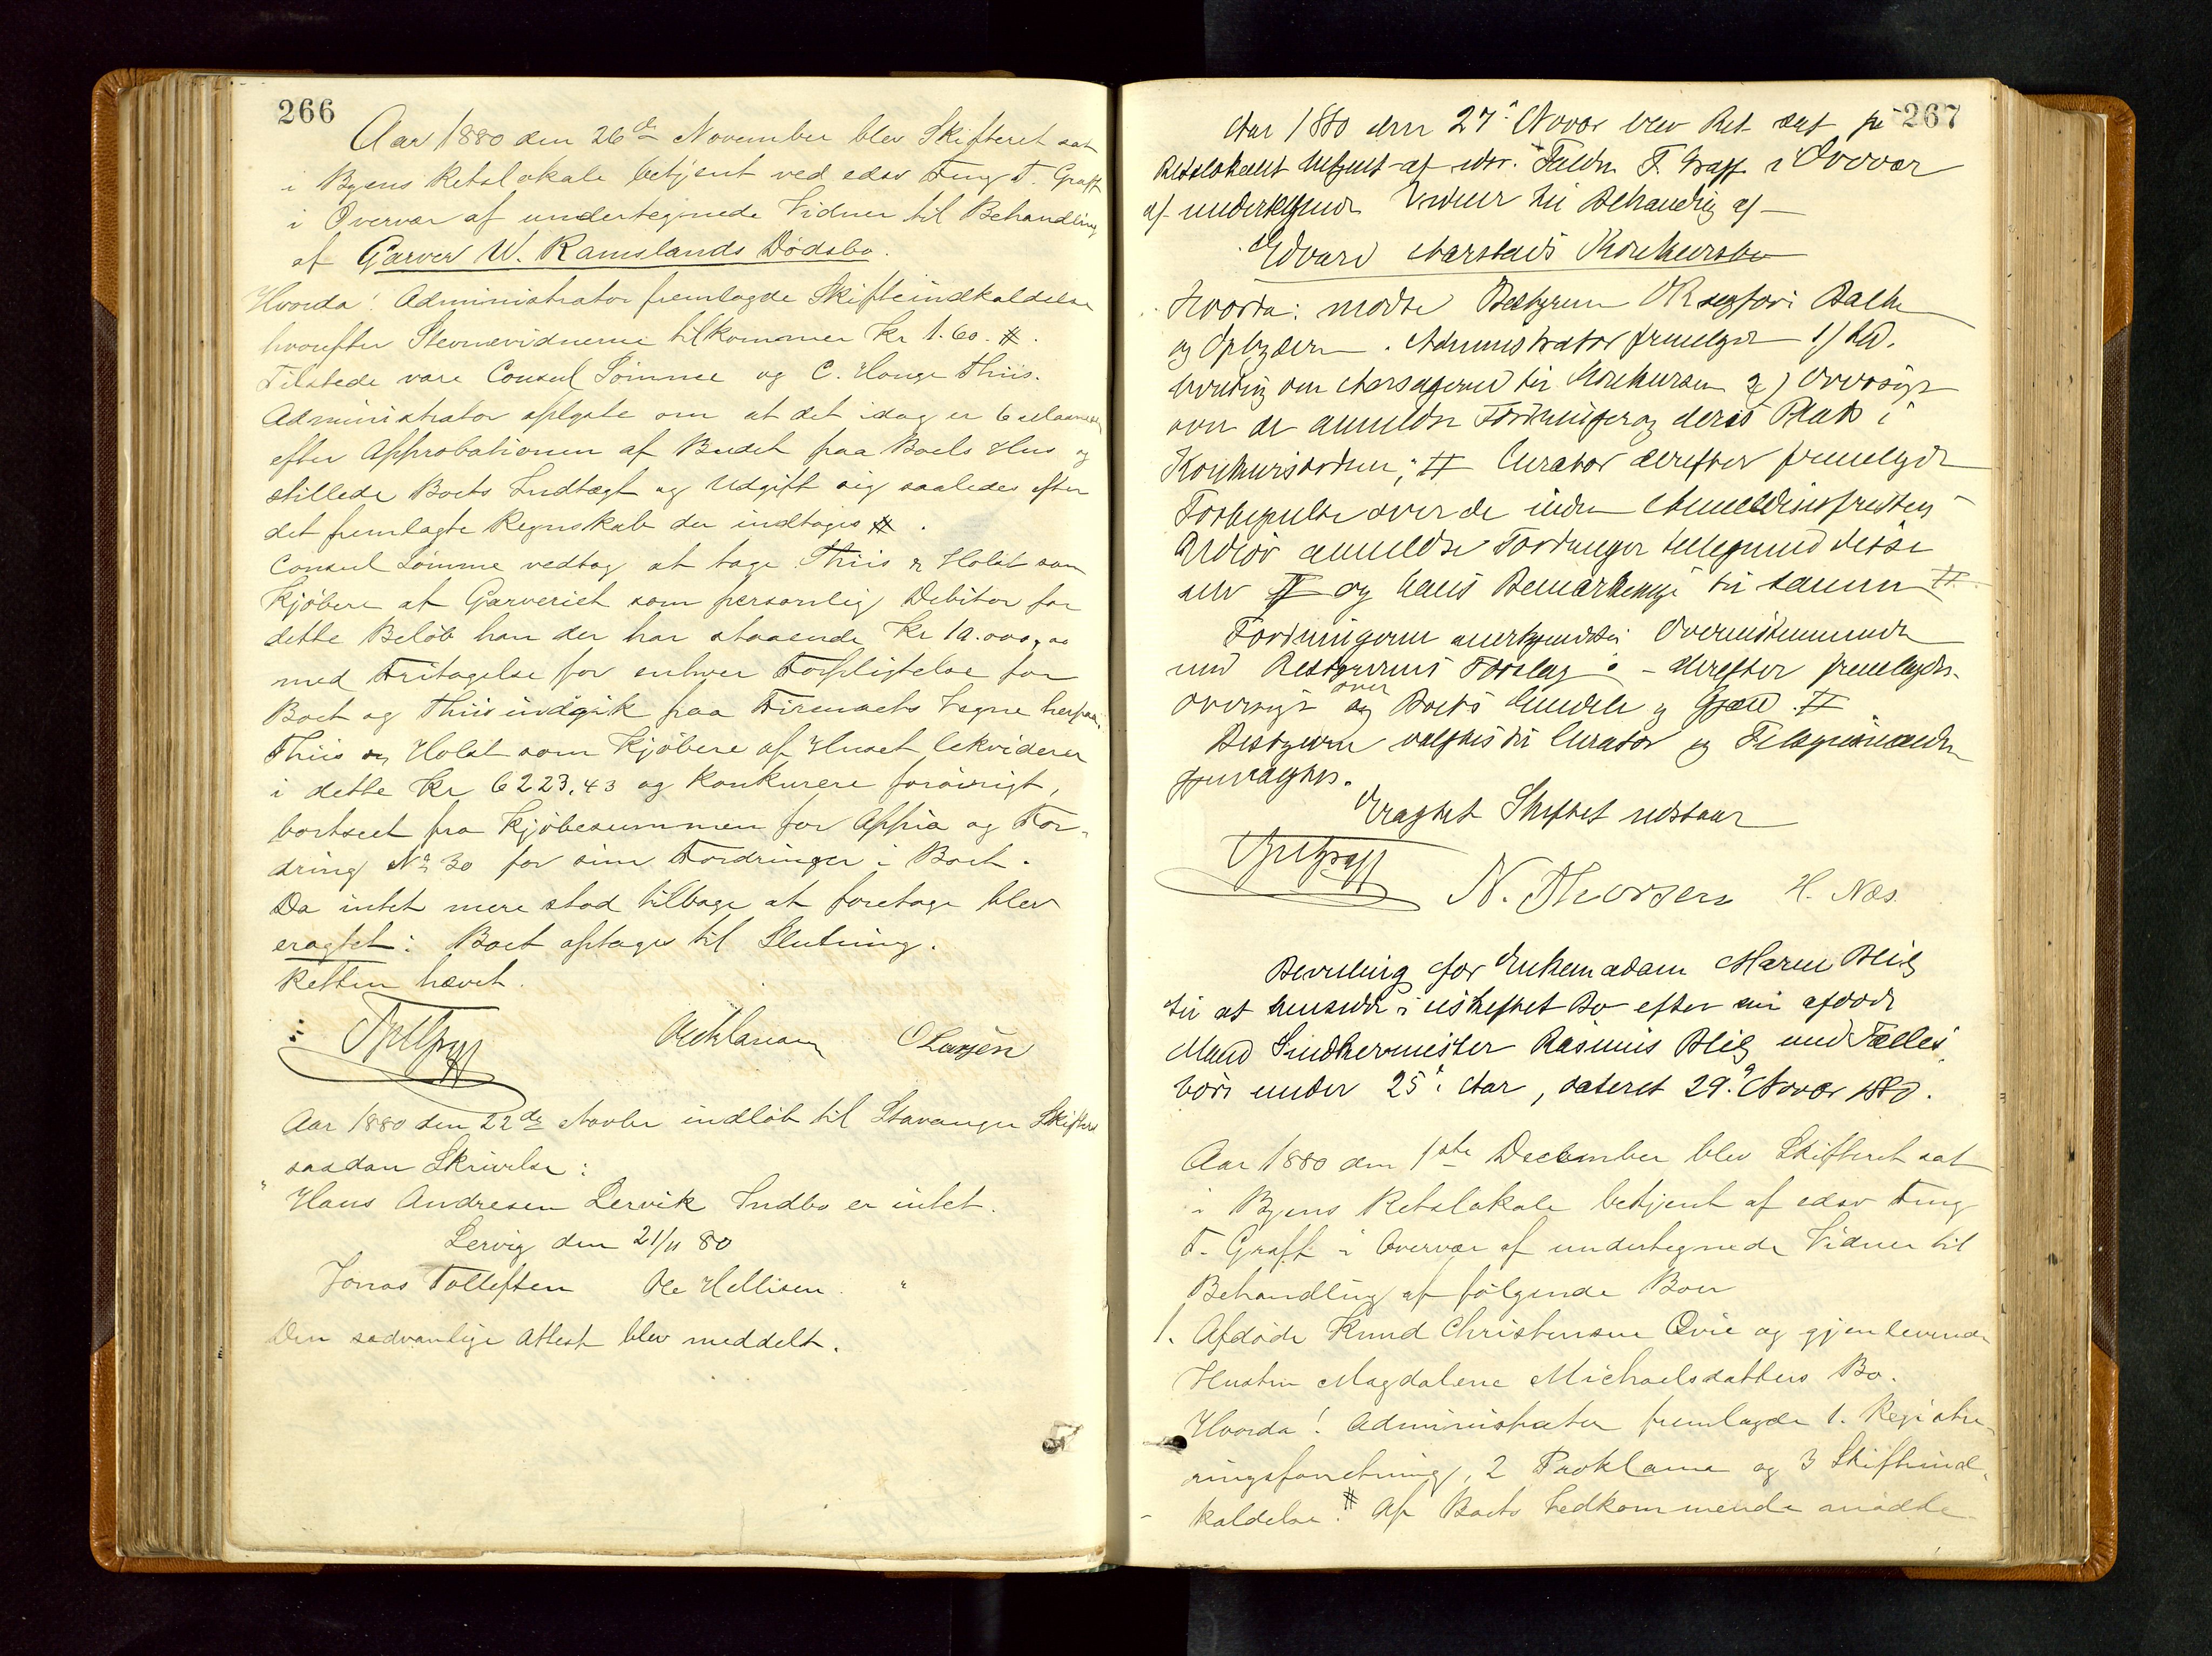 266
Aar 1880 den 26de November blev Skifteret sat
i Byens Retslokale betjent ved edsv Fmg T. Graff
i Overvær af undertegnede Vidner til Behandling
af Garver W. Ramslands Dødsbo.
Hvorda! Administrator fremlagde Skifteindkaldelse
hvorefter Stevnevidnerne tilkommer Kr 1.60. #.
Tilstede vare Consul Sømme og C. Hauge Thiis.
Administrator oplyste om at det idag er 6
efter Approbationen af Budet paa Boets Hus og
stillede Boets Indtægt og Udgift sig saaledes efter
det fremlagte Regnskab der indtages #.
Consul Sømme vedtog at tage Thiis & Holst som
Kjøbere af Garveriet som personlig Debitor for
dette Beløb han der har staaende Kr 10.000,00
med Fritagelse for enhver Forpligtelse for
Boet og Thiis indgik paa Firmaets Vegne herpaa.
Thiis og Holst som Kjøbere af Huset likviderer
i dette Kr 6223.43 og konkurere forøvrigt,
bortseet fra Kjøbesummen for Appia og For-
dring No 30 for sine Fordringer i Boet.
Da intet mere stod tilbage at foretage blev
eragtet: Boet optages til Slutning.
Retten hævet.
O Larsen
Aar 1880 den 22de Novbr indløb til Stavanger Skifteret
saadan Skrivelse:
" Hans Andresen Lervik Indbo er intet.
Lervig den 21/11 80
Jonas Tolleftsen Ole Hellisen. "
Den sædvanlige Attest blev meddelt.
267
Aar 1880 den 27de Novbr blev Ret sat på
Retslokalet betjent af edsv. Fuldm. T. Graff i Overvær
af undertegnede Vidner til Behandling af
Edvard Aarstads Konkursbo
Hvorda: mødte Bestyreren ORsagfører
og Opbyderen. Administrator fremlagde 1)
om Aarsagerne til Konkursen 2) Oversigt
over de anmeldte Fordringer og deres Plads i
Konkursordnen; # Curator derefter fremlagde
Fortegnelse over de inden Anmeldelsesfristens
Udløb anmeldte Fordringer tilligemed disse
selv # og hans Bemærkninger til samme #
Fordringerne anerkjendtes overensstemmende
med Bestyrerens Forslag: - derefter fremlagdes
Oversigt over Boets Eiendele og Gjæld #
Bestyreren valgtes til Curator og Tilsynsmænden
gjenvalgtes.
Eragtet Skiftet udstaar
N. Thorsen H. Næs.
Bevilling for Enkemadam Maren
til at hensidde i uskiftet Bo efter sin afdøde
Mand Snedkermester Rasmus med Fælles
børn under 25 Aar, dateret 29. Novbr 1880.
Aar 1880 den 1ste December blev Skifteret sat
i Byens Retslokale betjent af edsv Fmg
T. Graff i Overvær af undertegnede Vidner til
Behandling af følgende Boer
1. Afdøde Knud Christensen Qvie og gjenlevende
Hustru Magdalene Michaelsdatters Bo.
Hvorda! Administrator fremlagde 1. Registre-
ringsforretning, 2 Proklama og 3 Skifteind-
kaldelse. # Af Boets Vedkommende mødte